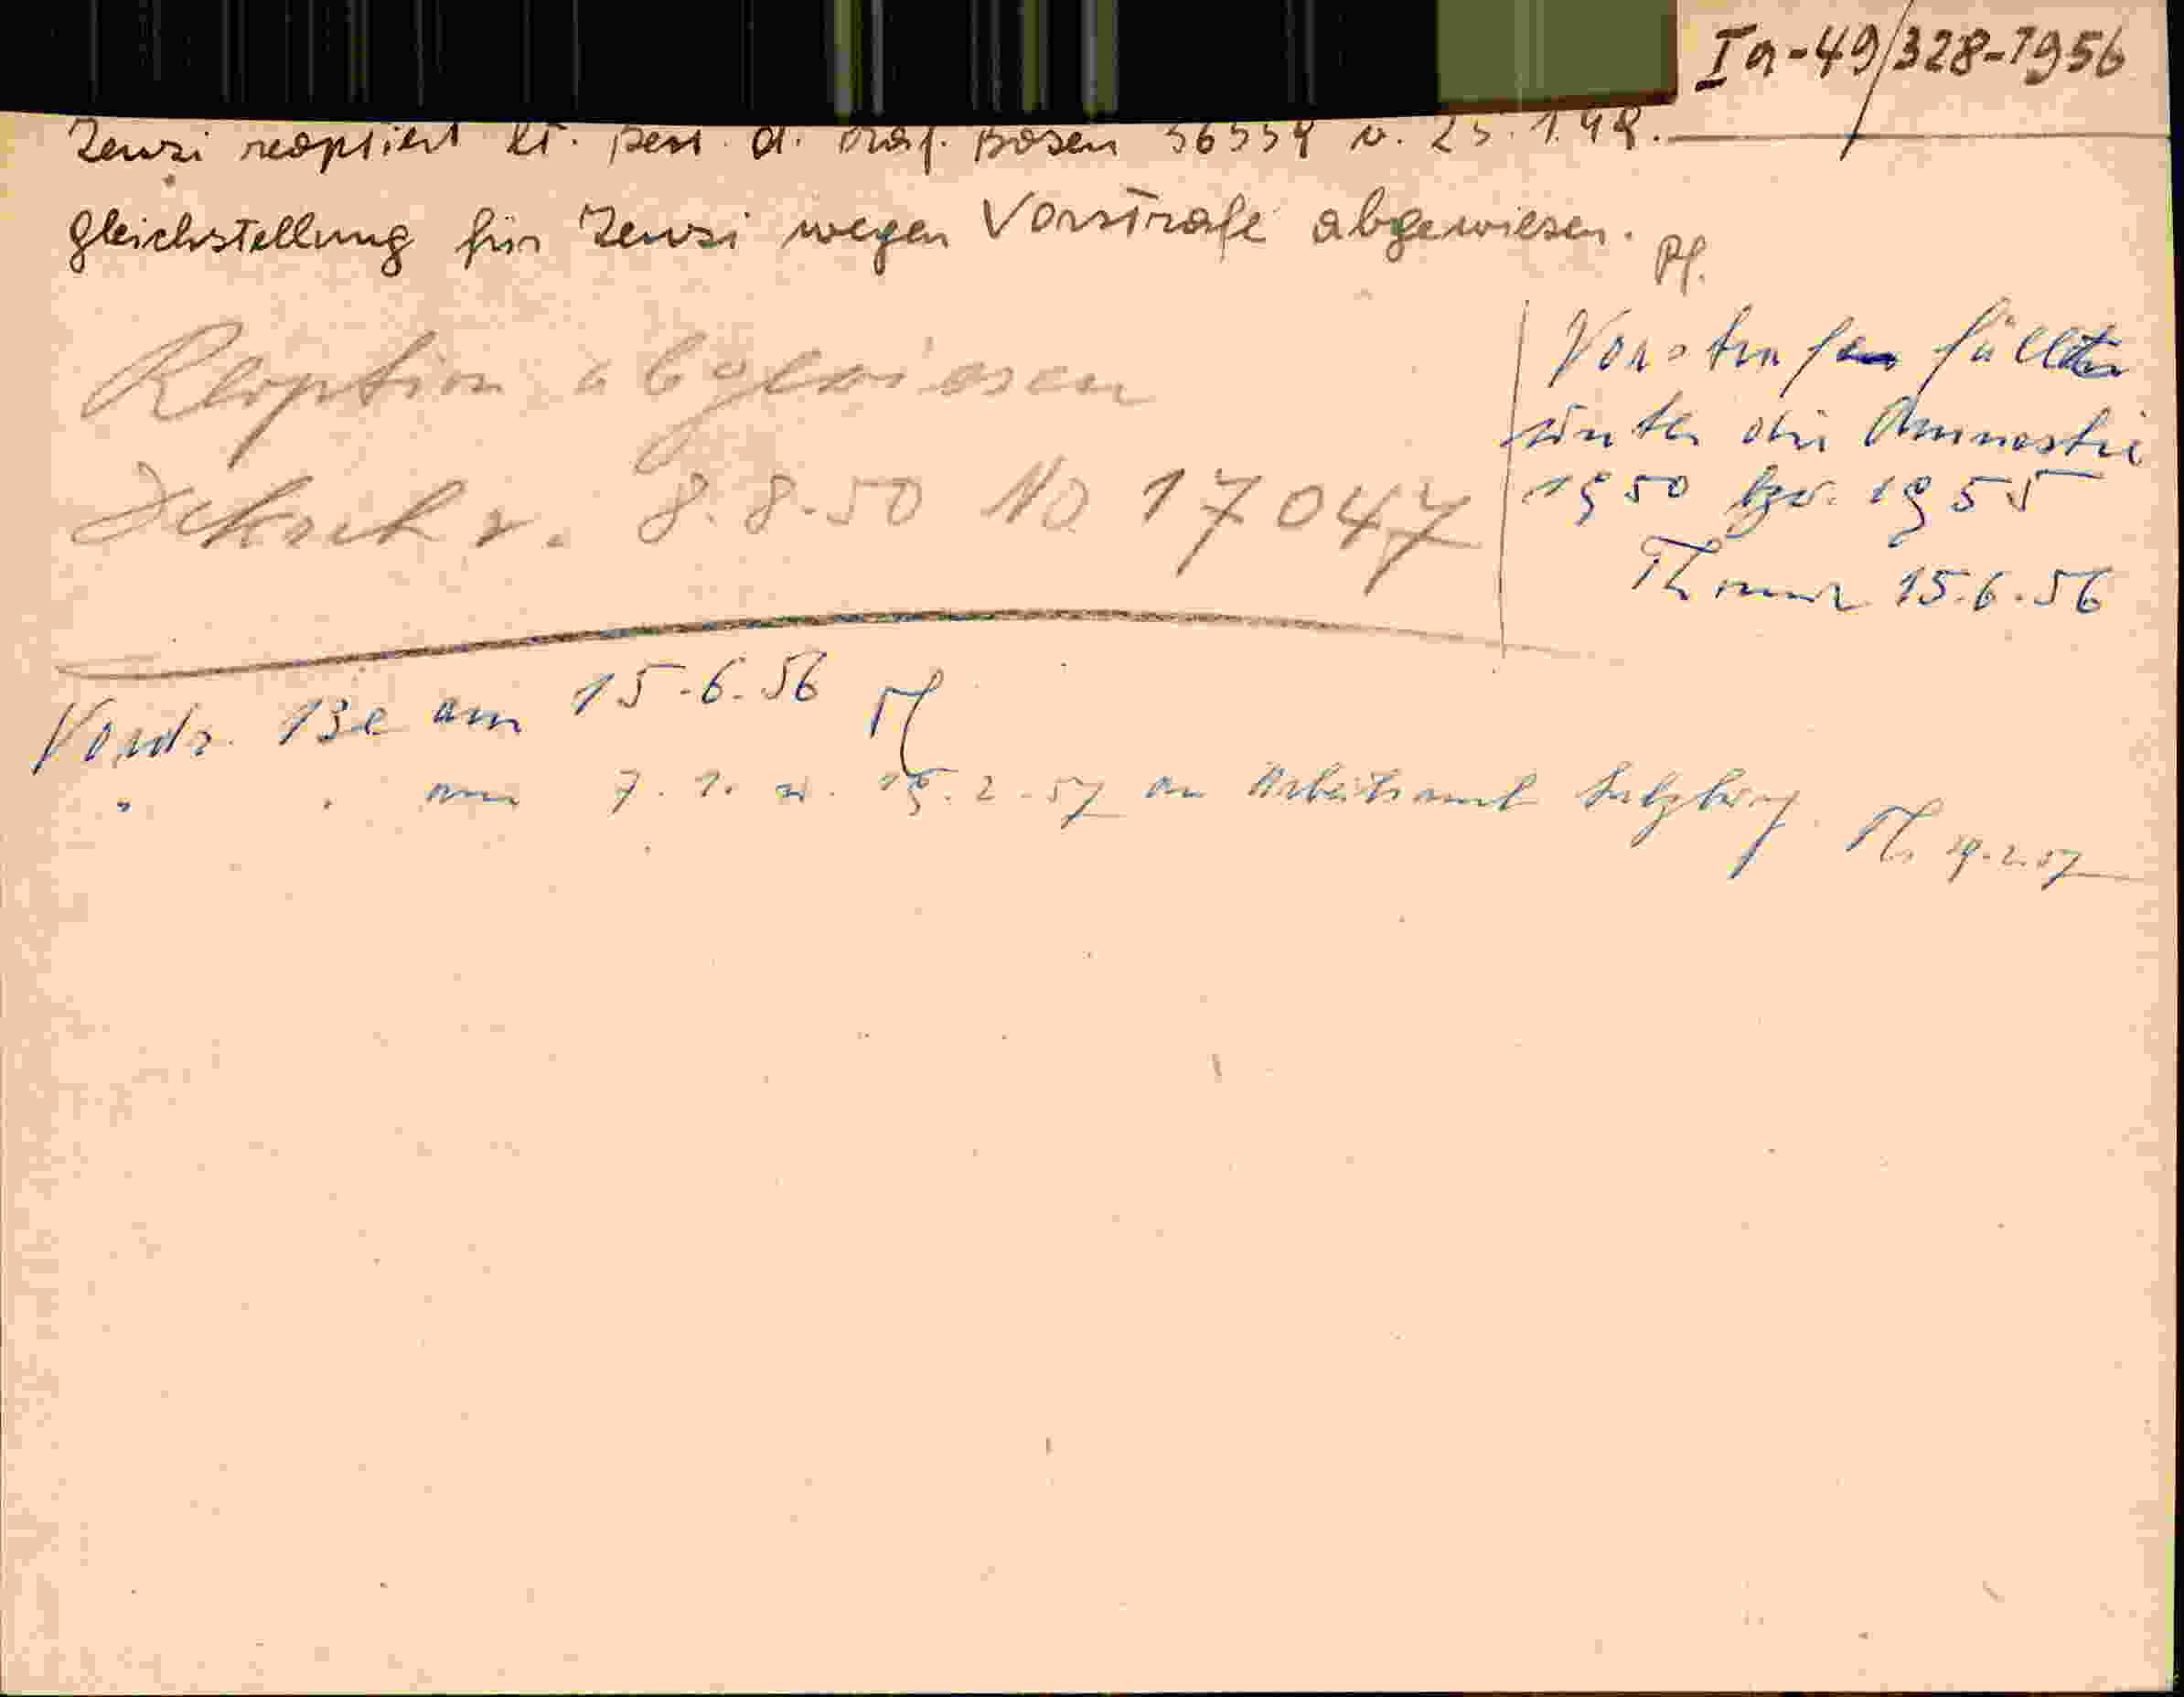 Ia-49/328-1956
Zensi reoptiert lt. Best. d. Präf. Bozen 36339 v. 23.1.49.
Gleichstellung für Zensi wegen Vorstrafe abgewiesen. Pf.
Reoption abgewiesen
Dekret v. 8.8.50 No 17047
Vorstrafen fallen
unter die Amnestie
1950 bzw. 1955
15.6.56
Vordr. 13e am 15.6.56
" " am 7.1. u. 19.2.57 an Arbeitsamt Salzburg. 19.2.57